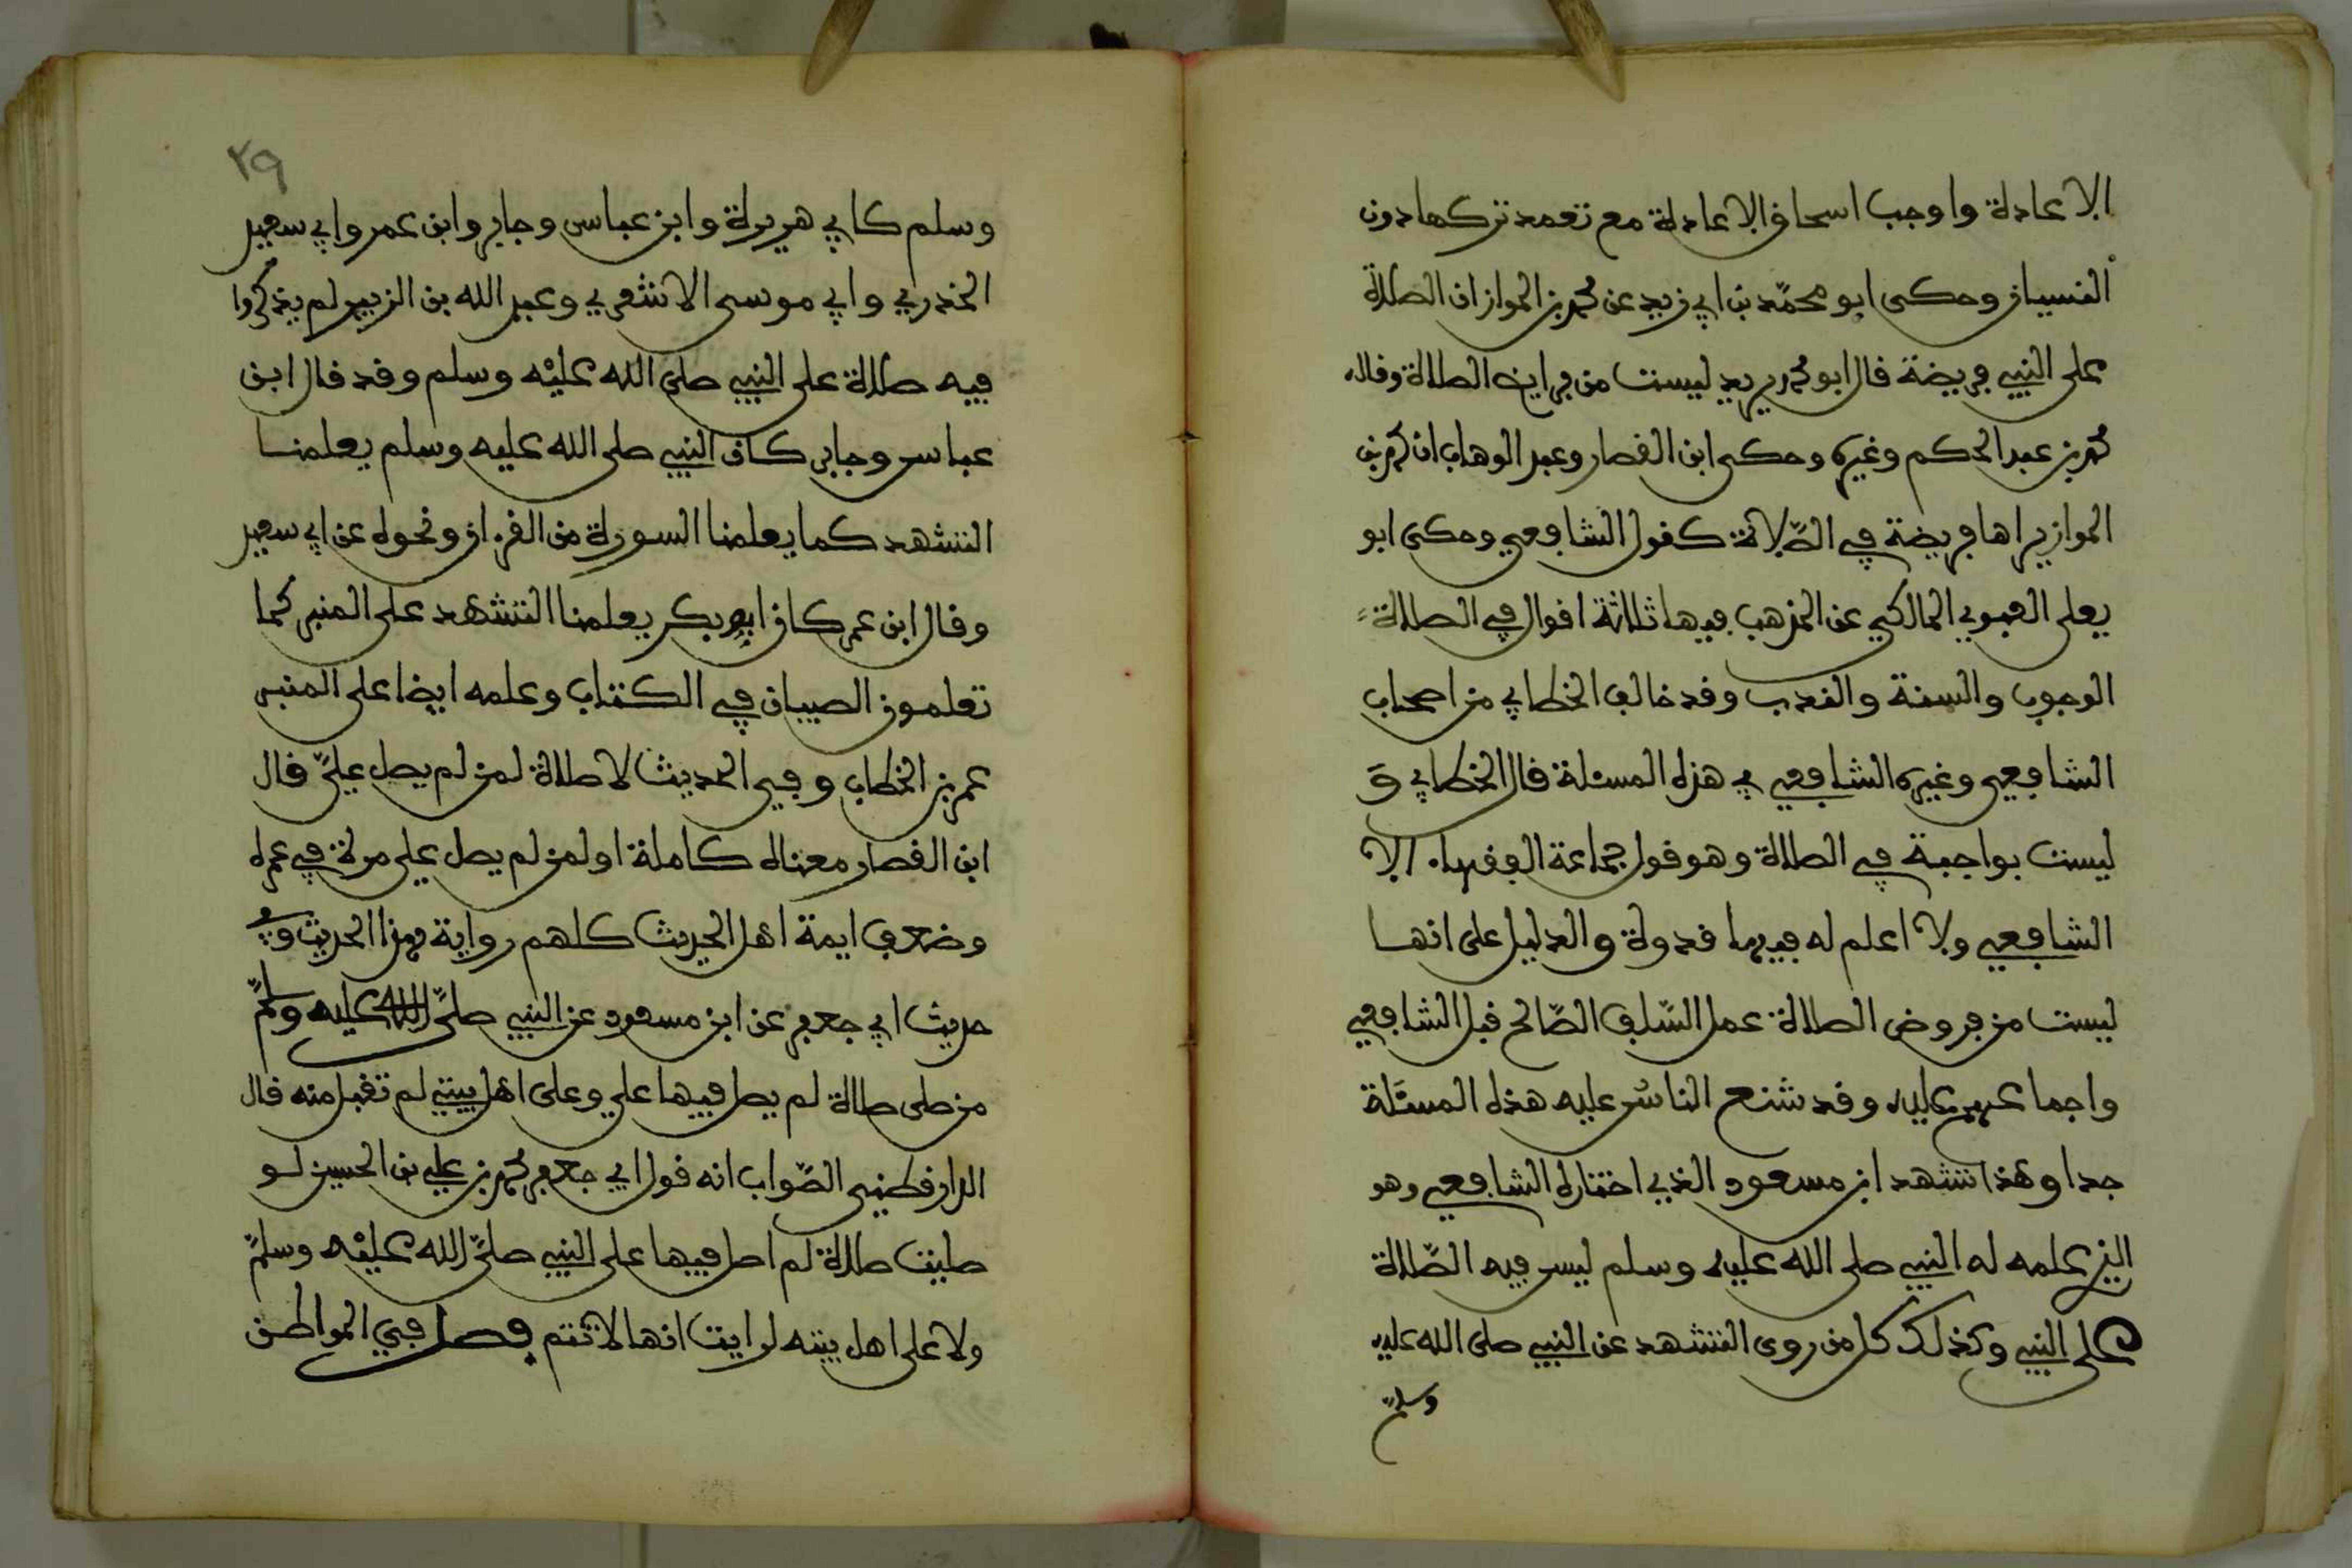 الاعادة واوجب اسحاق الاعادة مع تعمد تركها دون
النسيان وحكى ابو محمد بن ابي زيد عن محمد بن المواز ان الصلاة
على النبي فريضة قال ابو محمد يريد ليست من فرايض الصلاة وقاله
محمد بن عبد الحكم وغيره وحكى ابن القصار وعبد الوهاب ان محمد بن
المواز يراها فريضة في الصلاة كقول الشافعي وحكى ابو
يعلى العبدي المالكي عن المذهب فيها ثلاثة اقوال في الصلاة
الوجوب والسنة والندب وقد خالف الخطابي من اصحاب
الشافعي وغيره الشافعي في هذه المسئلة قال الخطابي و
ليست بواجبة في الصلاة وهو قول جماعة الفقهاء الا
الشافعي ولا اعلم له فيها قدوة والدليل على انها
ليست من فروض الصلاة عمل السلف الصالح قبل الشافعي
واجماعهم عليه وقد شنع الناس عليه هذه المسئلة
جدا وهذا تشهد ابن مسعود الذي اختاره الشافعي وهو
الذي علمه له النبي صلى الله عليه وسلم ليس فيه الصلاة
على النبي وكذلك كل من روى التشهد عن النبي صلى الله عليه
وسلم
٢٩
وسلم كابي هريرة وابن عباس وجابر وابن عمر وابي سعيد
الخدري وابي موسى الاشعري وعبد الله بن الزبير لم يذكروا
فيه صلاة على النبي صلى الله عليه وسلم وقد قال ابن
عباس وجابر كان النبي صلى الله عليه وسلم يعلمنا
التشهد كما يعلمنا السورة من القرءان ونحوه عن ابي سعيد
وقال ابن عمر كان ابو بكر يعلمنا التشهد على المنبر كما
تعلمون الصبيان في الكتاب وعلمه ايضا على المنبر
عمر بن الخطاب وفي الحديث لا صلاة لمن لم يصل علي قال
ابن القصار معناه كاملة او لمن لم يصل علي مرة في عمره
وضعف ايمة اهل الحديث كلهم رواية هذا الحديث وفي
حديث ابي جعفر عن ابن مسعود عن النبي صلى الله عليه وسلم
من صلى صلاة لم يصل فيها علي وعلى اهل بيتي لم تقبل منه قال
الدارقطني الصواب انه قول ابي جعفر محمد بن علي بن الحسين لو
صليت صلاة لم اصل فيها على النبي صلى الله عليه وسلم
ولا على اهل بيته لرايت انها لا تتم فصل في المواطن